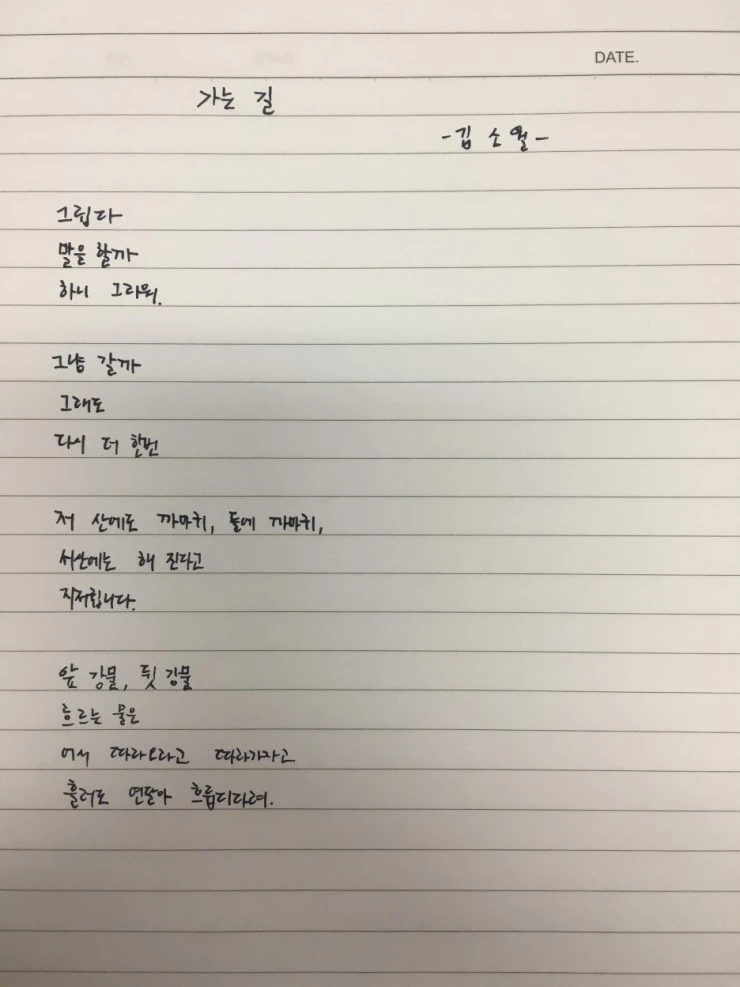 DATE.
가는 길
-김 소월-
그립다
말을 할까
하니 그리워.
그냥 갈까
그래도
다시 더 한번
저 산에도 까마귀, 들에 까마귀,
서산에는 해 진다고
지저귑니다.
앞 강물, 뒷 강물
흐르는 물은
어서 따라오라고 따라가자고
흘러도 연달아 흐릅디다려.